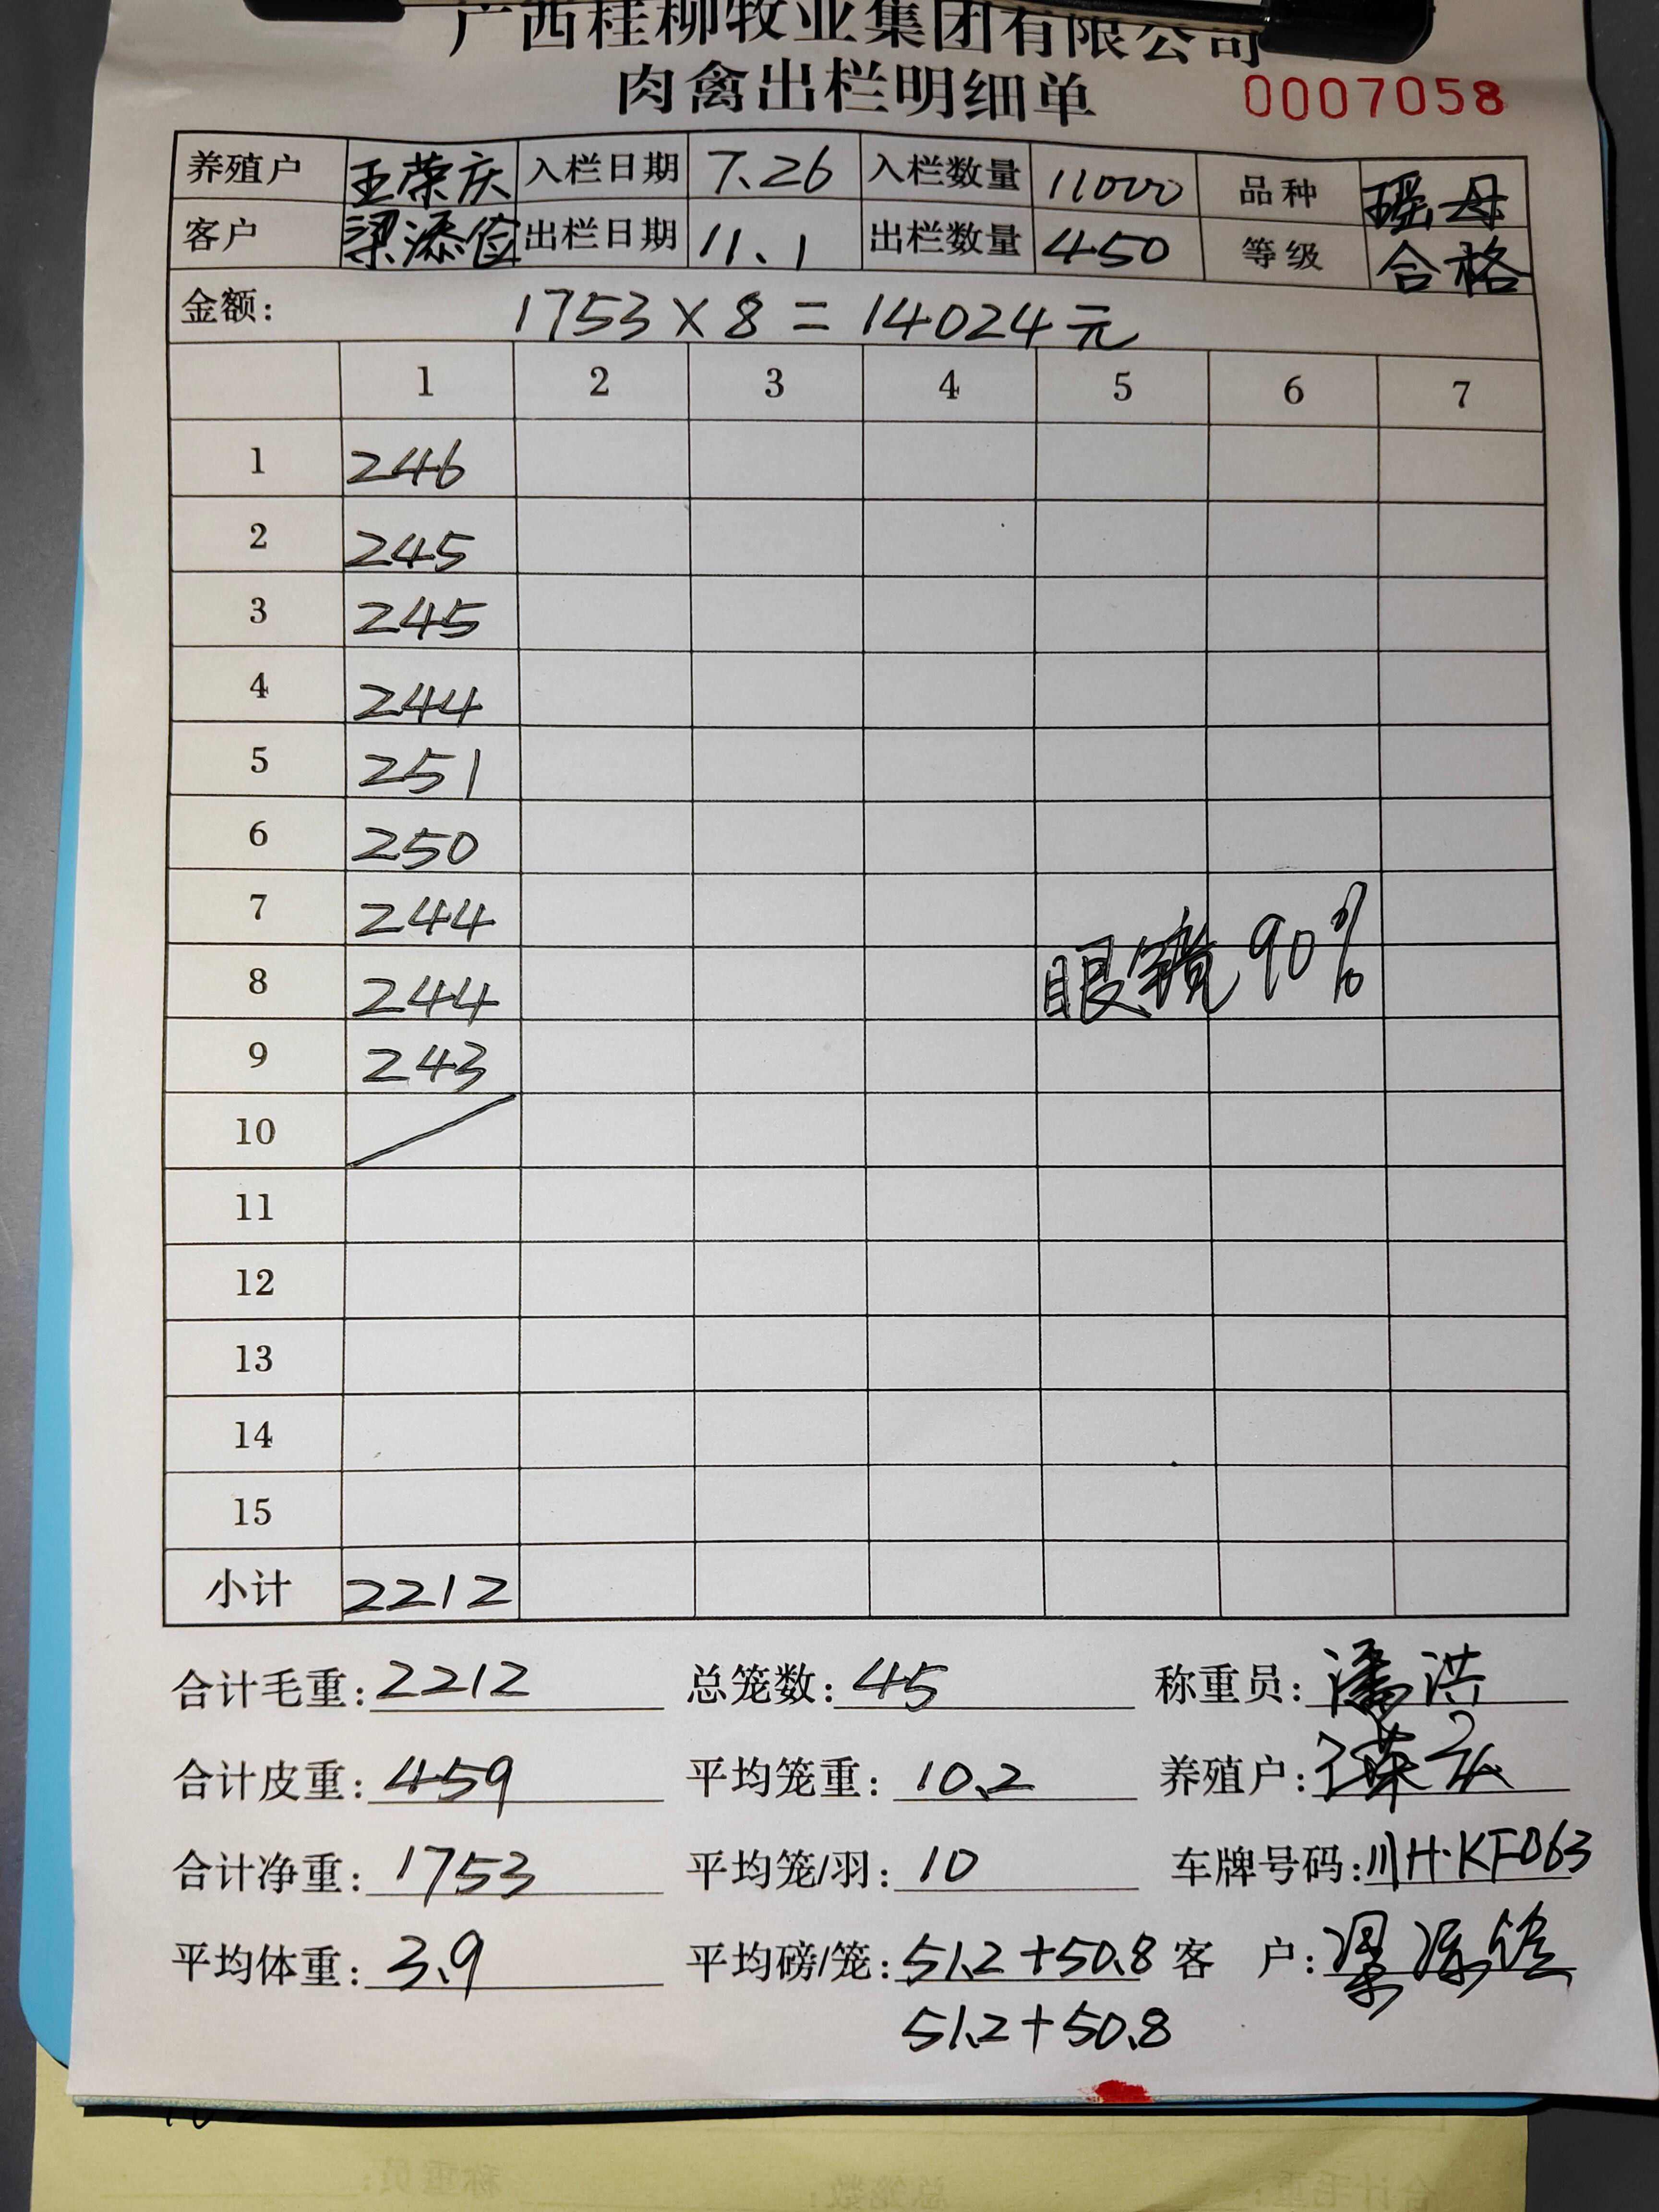 广西桂柳牧业集团有限公司
肉禽出栏明细单 0007058
养殖户 王荣庆 入栏日期 7.26 入栏数量 11000 品种 瑶母
客户 梁添俭 出栏日期 11.1 出栏数量 450 等级 合格
金额: 1753×8=14024元
1 2 3 4 5 6 7
1 246
2 245
3 245
4 244
5 251
6 250
7 244
8 244
眼镜90%
9 243
10
11
12
13
14
15
小计 2212
合计毛重: 2212 总笼数: 45 称重员: 潘洪
合计皮重: 459 平均笼重: 10.2 养殖户:
合计净重: 1753 平均笼/羽: 10 车牌号码: 川H·KF063
平均体重: 3.9 平均磅/笼: 51.2+50.8 客 户:
51.2+50.8